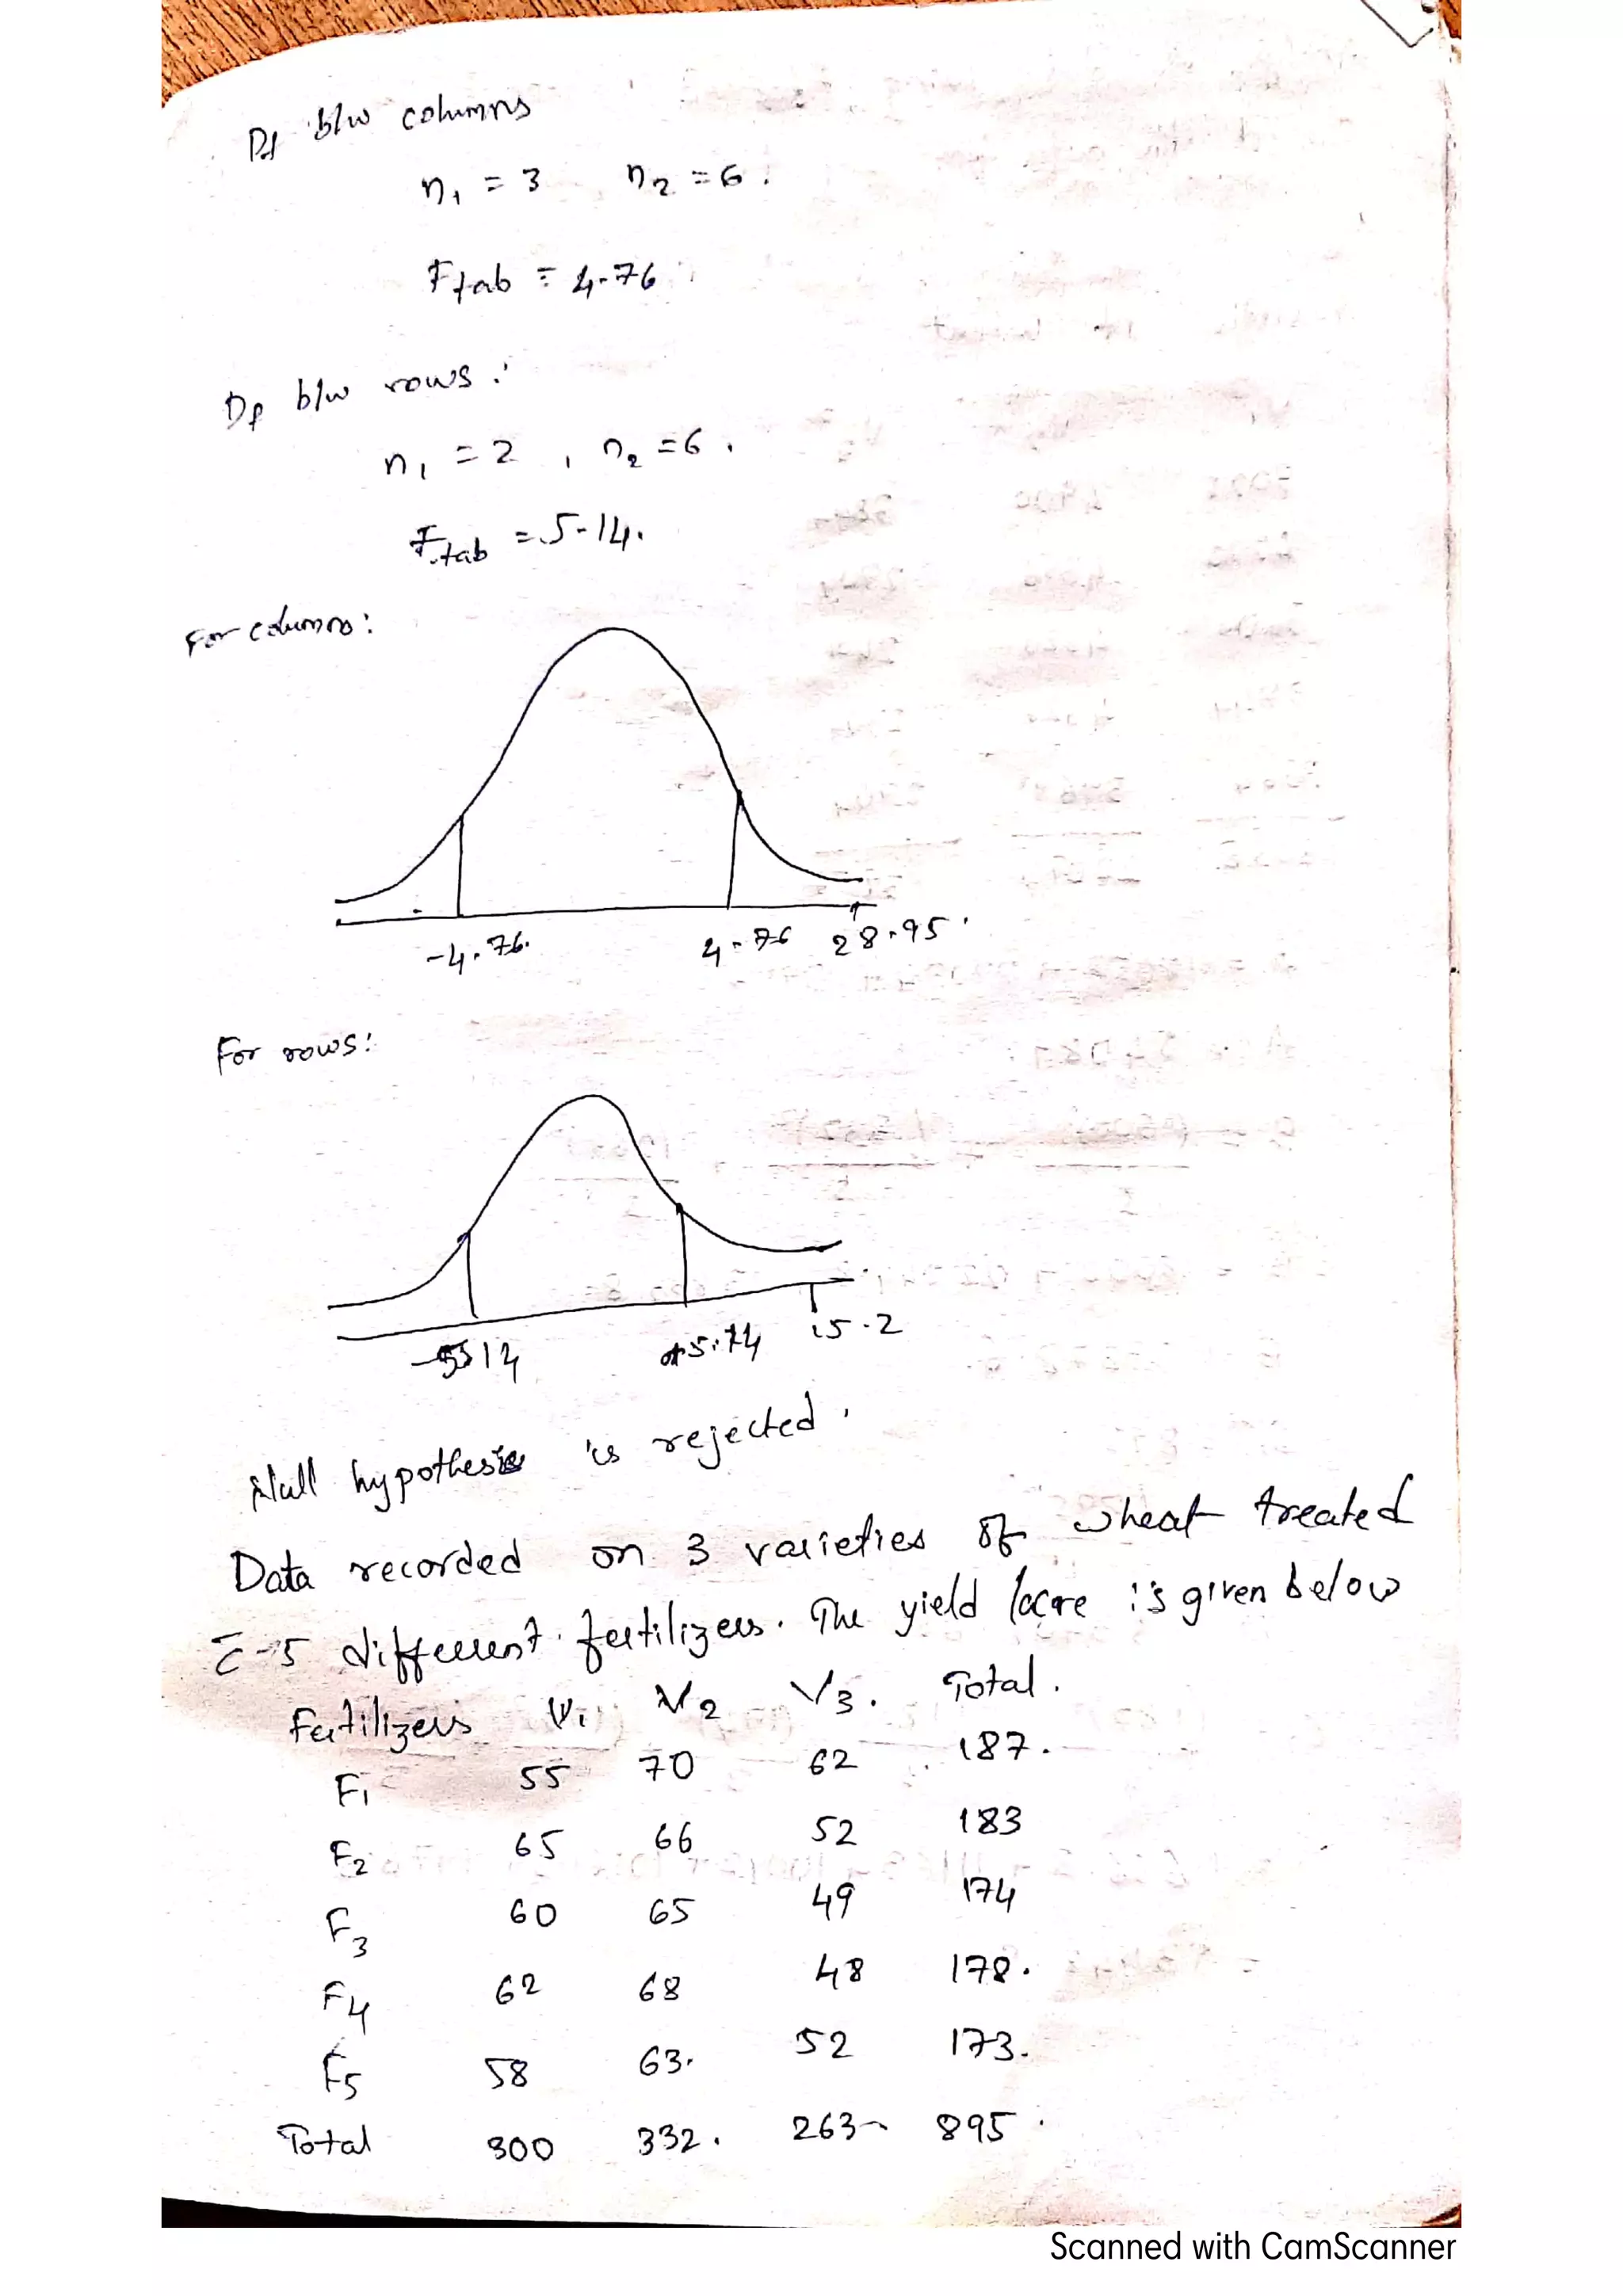 Df b/w columns
n₁ = 3 n₂ = 6.
Ftab = 4.76
Df b/w rows:
n₁ = 2, n₂ = 6.
Ftab = 5.14.
For columns:
-4.76. 4.76 28.95.
For rows:
15.2
Null hypothesis is rejected.
Data recorded on 3 varieties of wheat treated
c̄ 5 different fertilizers. The yield /acre is given below
Fertilizers V₁ V₂ V₃. Total.
F₁ 55 70 62 187.
F₂ 65 66 52 183
F₃ 60 65 49 174
F₄ 62 68 48 178.
F₅ 58 63. 52 173.
Total 300 332. 263 895.
Scanned with CamScanner